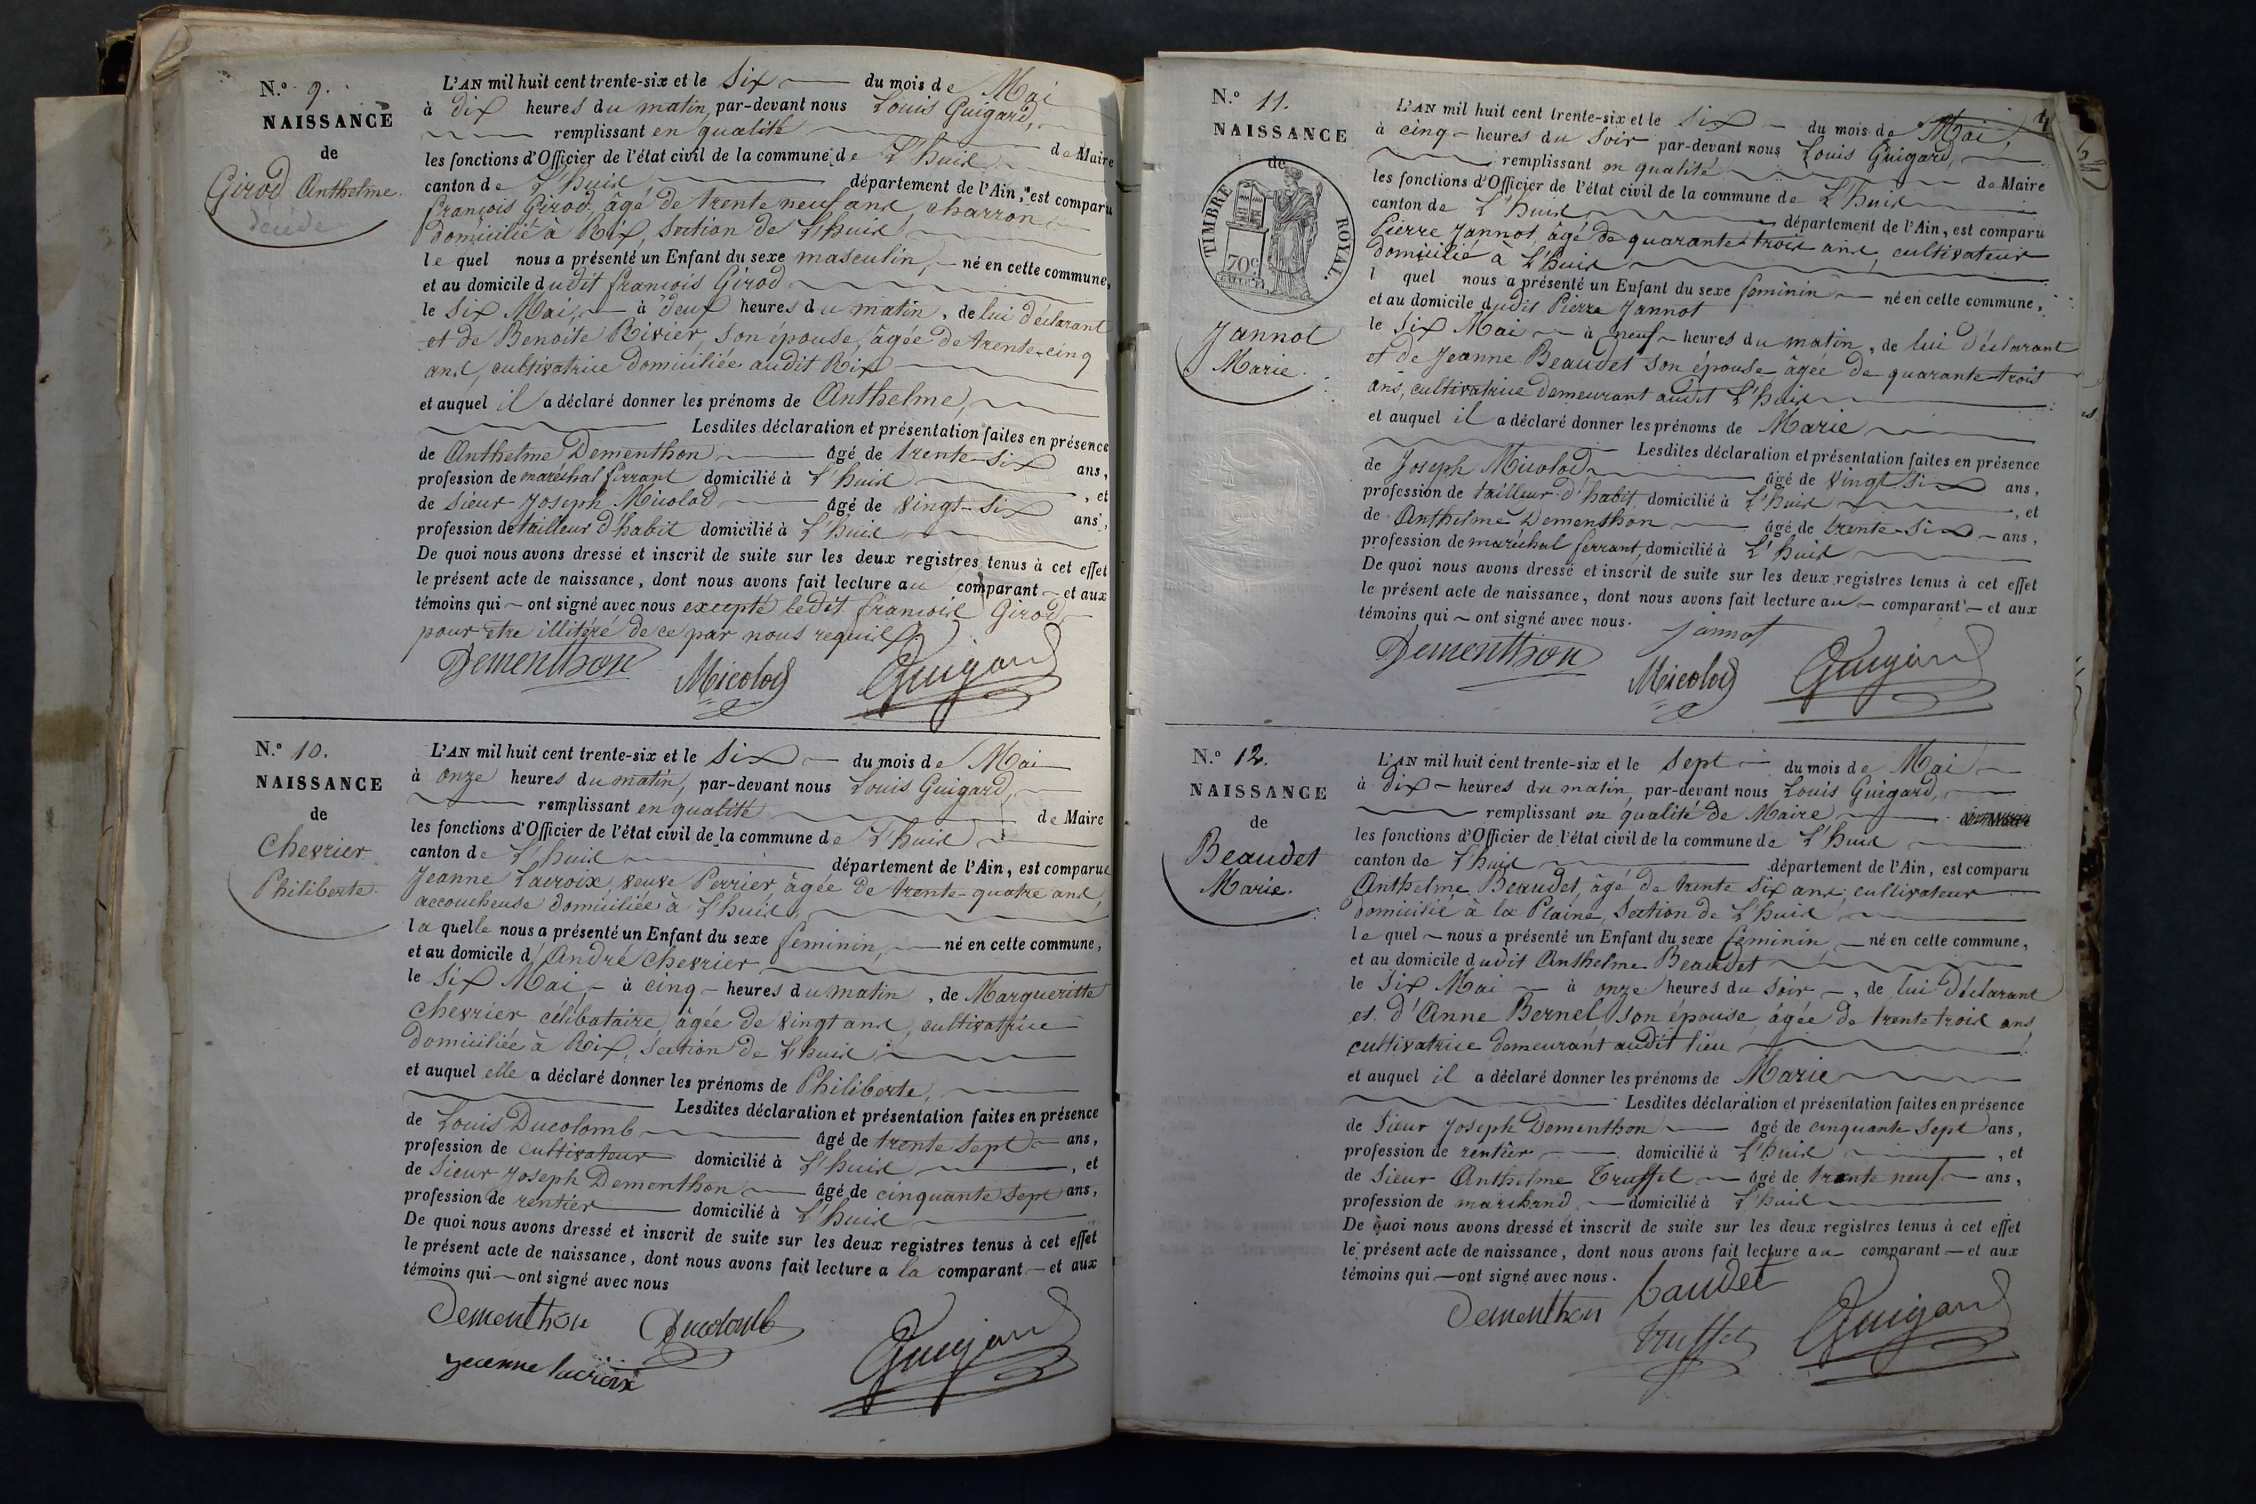 N.° 9.
NAISSANCE
de
Girod Anthelme.
décédé
L'AN mil huit cent trente-six et le Six du mois de Mai
à dix heures du matin, par-devant nous Louis Guigard,
remplissant en qualité de Maire
les fonctions d'Officier de l'état civil de la commune de L'huis
canton de L'huis département de l'Ain, est comparu
françois Girod, âgé de trente neuf ans, charron
domicilié à Rix, Section de L'huis
le quel nous a présenté un Enfant du sexe masculin, né en cette commune,
et au domicile dudit françois Girod
le Six Mai, à deux heures du matin, de lui déclarant
et de Benoîte Rivier, son épouse, âgée de trente-cinq
ans, cultivatrice domiciliée audit Rix
et auquel il a déclaré donner les prénoms de Anthelme,
Lesdites déclaration et présentation faites en présence
de Anthelme Dementhon âgé de trente-six ans,
profession de maréchal ferrant domicilié à L'huis, et
de Sieur Joseph Micolod âgé de vingt-six ans,
profession de tailleur d'habit domicilié à L'huis
De quoi nous avons dressé et inscrit de suite sur les deux registres tenus à cet effet
le présent acte de naissance, dont nous avons fait lecture au comparant et aux
témoins qui ont signé avec nous excepté ledit françois Girod
pour être illitéré de ce par nous requis
Dementhon Micolod Guigard
N.° 10.
NAISSANCE
de
Chevrier
Philiberte.
L'AN mil huit cent trente-six et le Six du mois de Mai
à onze heures du matin, par-devant nous Louis Guigard,
remplissant en qualité de Maire
les fonctions d'Officier de l'état civil de la commune de L'huis
canton de L'huis département de l'Ain, est comparue
Jeanne Lacroix, veuve Perrier, âgée de trente-quatre ans,
accoucheuse domiciliée à L'huis,
la quelle nous a présenté un Enfant du sexe feminin, né en cette commune,
et au domicile d'André Chevrier
le Six Mai, à cinq heures du matin, de Margueritte
Chevrier célibataire, âgée de vingt ans, cultivatrice
domiciliée à Rix, Section de L'huis
et auquel elle a déclaré donner les prénoms de Philiberte,
Lesdites déclaration et présentation faites en présence
de Louis Ducolomb âgé de trente sept ans,
profession de cultivateur domicilié à L'huis, et
de Sieur Joseph Dementhon âgé de cinquante sept ans,
profession de rentier domicilié à L'huis
De quoi nous avons dressé et inscrit de suite sur les deux registres tenus à cet effet
le présent acte de naissance, dont nous avons fait lecture a la comparant et aux
témoins qui ont signé avec nous
Dementhon Ducolomb
jeanne lacroix Guigard
4
N.° 11.
NAISSANCE
de
TIMBRE ROYAL.
70c
Jannot
Marie.
L'AN mil huit cent trente-six et le Six du mois de Mai,
à cinq heures du Soir par-devant nous Louis Guigard,
remplissant en qualité de Maire
les fonctions d'Officier de l'état civil de la commune de L'huis
canton de L'huis département de l'Ain, est comparu
Pierre Jannot, âgé de quarante-trois ans, cultivateur
domicilié à L'huis
l quel nous a présenté un Enfant du sexe feminin né en cette commune,
et au domicile dudit Pierre Jannot
le Six Mai à neuf heures du matin, de lui déclarant
et de Jeanne Beaudet son épouse âgée de quarante-trois
ans, cultivatrice demeurant audit L'huis
et auquel il a déclaré donner les prénoms de Marie
Lesdites déclaration et présentation faites en présence
de Joseph Micolod âgé de vingt Six ans,
profession de tailleur d'habit, domicilié à L'huis, et
de Anthelme Dementhon âgé de trente-six ans,
profession de maréchal ferrant, domicilié à L'huis
De quoi nous avons dressé et inscrit de suite sur les deux registres tenus à cet effet
le présent acte de naissance, dont nous avons fait lecture au comparant et aux
témoins qui ont signé avec nous. Jannot
Dementhon Micolod Guigard
N.° 12.
NAISSANCE
de
Beaudet
Marie.
L'AN mil huit cent trente-six et le Sept du mois de Mai
à dix heures du matin, par-devant nous Louis Guigard,
remplissant en qualité de Maire de Maire
les fonctions d'Officier de l'état civil de la commune de L'huis
canton de L'huis département de l'Ain, est comparu
Anthelme Beaudet, âgé de trente Six ans, cultivateur
domicilié à la Plaine, Section de L'huis
le quel nous a présenté un Enfant du sexe feminin né en cette commune,
et au domicile dudit Anthelme Beaudet
le Six Mai à onze heures du Soir, de lui déclarant
et d'Anne Bernel son épouse âgée de trente trois ans,
cultivatrice demeurant audit lieu
et auquel il a déclaré donner les prénoms de Marie
Lesdites déclaration et présentation faites en présence
de Sieur Joseph Dementhon âgé de cinquante Sept ans,
profession de rentier domicilié à L'huis, et
de Sieur Anthelme Truffet âgé de trente neuf ans,
profession de marchand domicilié à L'huis
De quoi nous avons dressé et inscrit de suite sur les deux registres tenus à cet effet
le présent acte de naissance, dont nous avons fait lecture au comparant et aux
témoins qui ont signé avec nous. baudet
Dementhon truffet Guigard